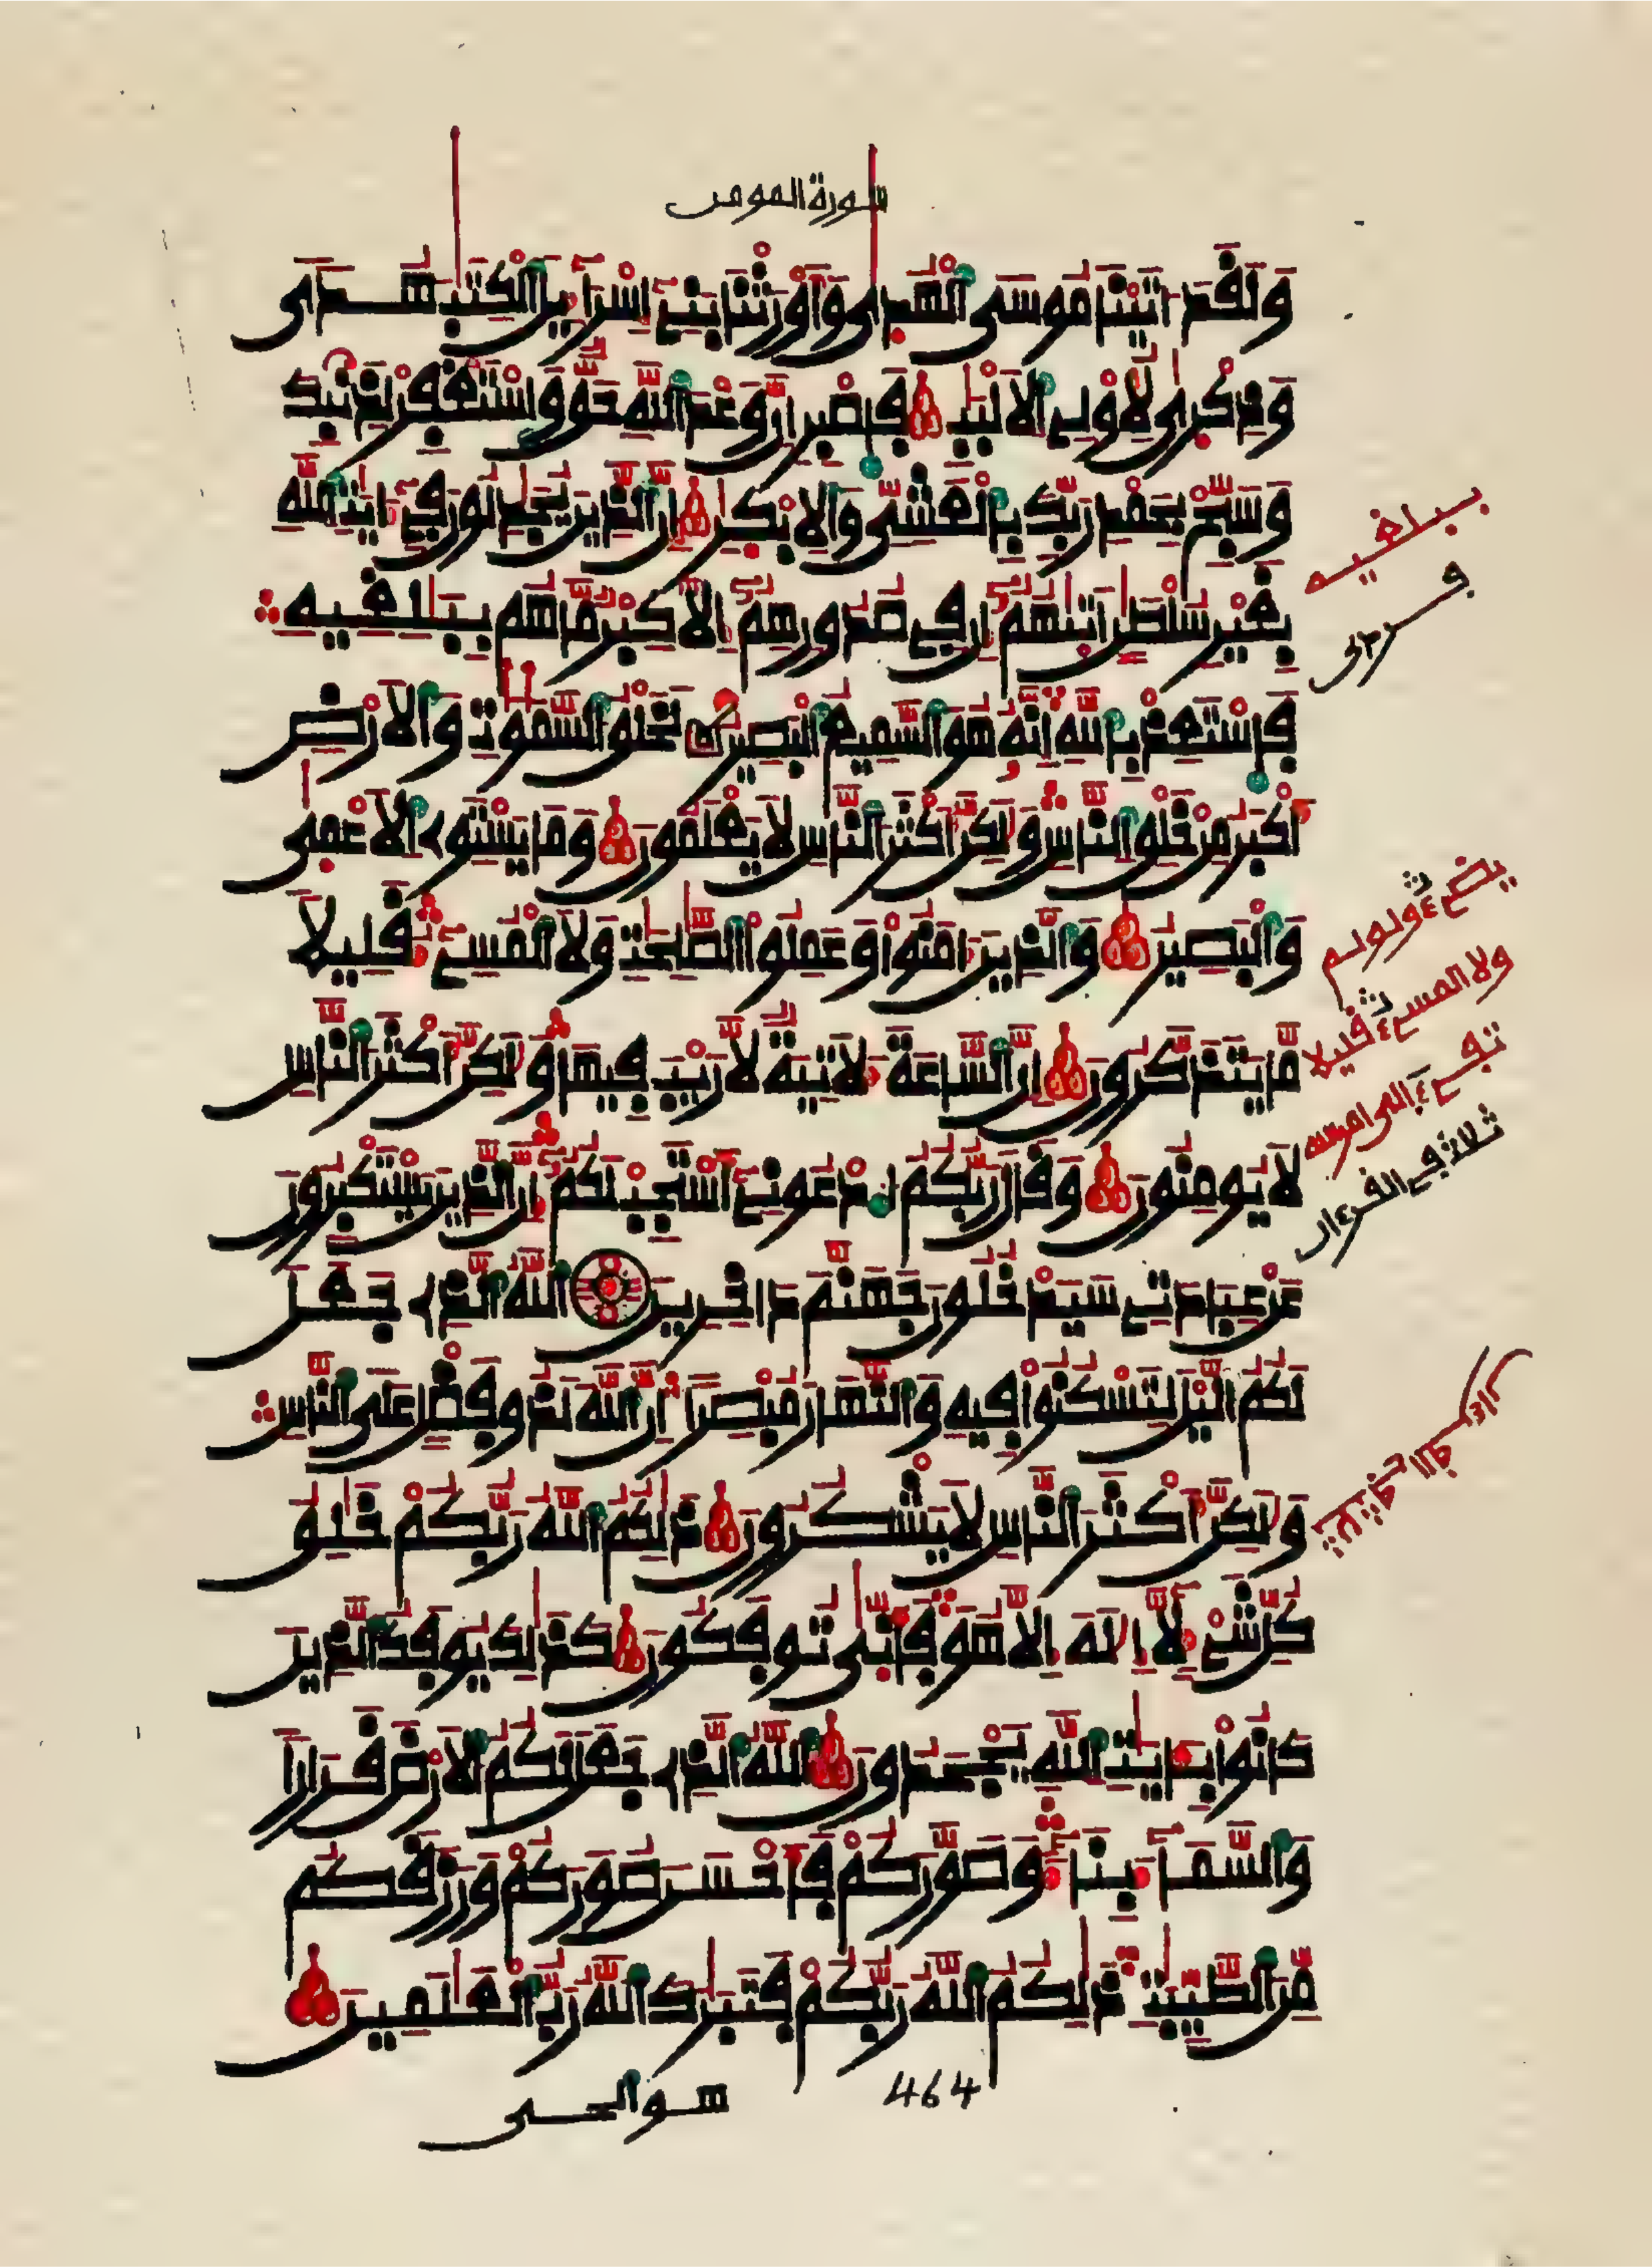 سورة المومن
وَلَقَدَ اتَيْنَا مُوسَى الْهُدٜى وَأَوْرَثْنَا بَنِےٓ إِسْرَآءِيلَ الْكِتَٰبَ هُدٗى
وَذِكْر۪ىٰ لِأُوْلِے الْأَلْبَٰبِ فَاصْبِرِ انَّ وَعْدَ اللَّهِ حَقّٞ وَاسْتَغْفِرْ لِذَنۢبِكَ
وَسَبِّحْ بِحَمْدِ رَبِّكَ بِالْعَشِيِّ وَالِابْكٰ۪رِ إِنَّ الَّذِينَ يُجَٰدِلُونَ فِےٓ ءَايَٰتِ اللَّهِ
بِغَيْرِ سُلْطَٰنٍ اَتٜىٰهُمُۥٓ إِن فِے صُدُورِهِمُۥٓ إِلَّا كِبْرٞ مَّا هُم بِبَٰلِغِيهِ
فَاسْتَعِذْ بِاللَّهِ إِنَّهُۥ هُوَ السَّمِيعُ الْبَصِيرُ لَخَلْقُ السَّمَٰوَٰتِ وَالْأَرْضِ
أَكْبَرُ مِنْ خَلْقِ النَّاسِ وَلَٰكِنَّ أَكْثَرَ النَّاسِ لَا يَعْلَمُونَ وَمَا يَسْتَوِے الْأَعْمٜىٰ
وَالْبَصِيرُ وَالَّذِينَ ءَامَنُواْ وَعَمِلُواْ الصَّٰلِحَٰتِ وَلَا الْمُسِےٓءُ قَلِيلٗا
مَّا يَتَذَكَّرُونَ إِنَّ السَّاعَةَ لَأٓتِيَةٞ لَّا رَيْبَ فِيهَا وَلَٰكِنَّ أَكْثَرَ النَّاسِ
لَا يُومِنُونَ وَقَالَ رَبُّكُمُ ادْعُونِےٓ أَسْتَجِبْ لَكُمُۥٓ إِنَّ الَّذِينَ يَسْتَكْبِرُونَ
عَنْ عِبَادَتِے سَيَدْخُلُونَ جَهَنَّمَ دَاخِرِينَ اللَّهُ الَّذِے جَعَلَ
لَكُمُ الَّيْلَ لِتَسْكُنُواْ فِيهِ وَالنَّهَارَ مُبْصِرًا إِنَّ اللَّهَ لَذُو فَضْلٍ عَلَى النَّاسِ
وَلَٰكِنَّ أَكْثَرَ النَّاسِ لَا يَشْكُرُونَ ذَٰلِكُمُ اللَّهُ رَبُّكُمْ خَٰلِقُ
كُلِّ شَےْءٖ لَّآ إِلَٰهَ إِلَّا هُوَ فَأَنّٜىٰ تُوفَكُونَ كَذَٰلِكَ يُوفَكُ الَّذِينَ
كَانُواْ بِـَٔايَٰتِ اللَّهِ يَجْحَدُونَ اللَّهُ الَّذِے جَعَلَ لَكُمُ الْأَرْضَ قَرَارٗا
وَالسَّمَآءَ بِنَآءٗ وَصَوَّرَكُمْ فَأَحْسَنَ صُوَرَكُمْ وَرَزَقَكُم
مِّنَ الطَّيِّبَٰتِ ذَٰلِكُمُ اللَّهُ رَبُّكُمْ فَتَبَٰرَكَ اللَّهُ رَبُّ الْعَٰلَمِينَ
464
هو الحى
ببلغيه
ولا المسےء قليلا